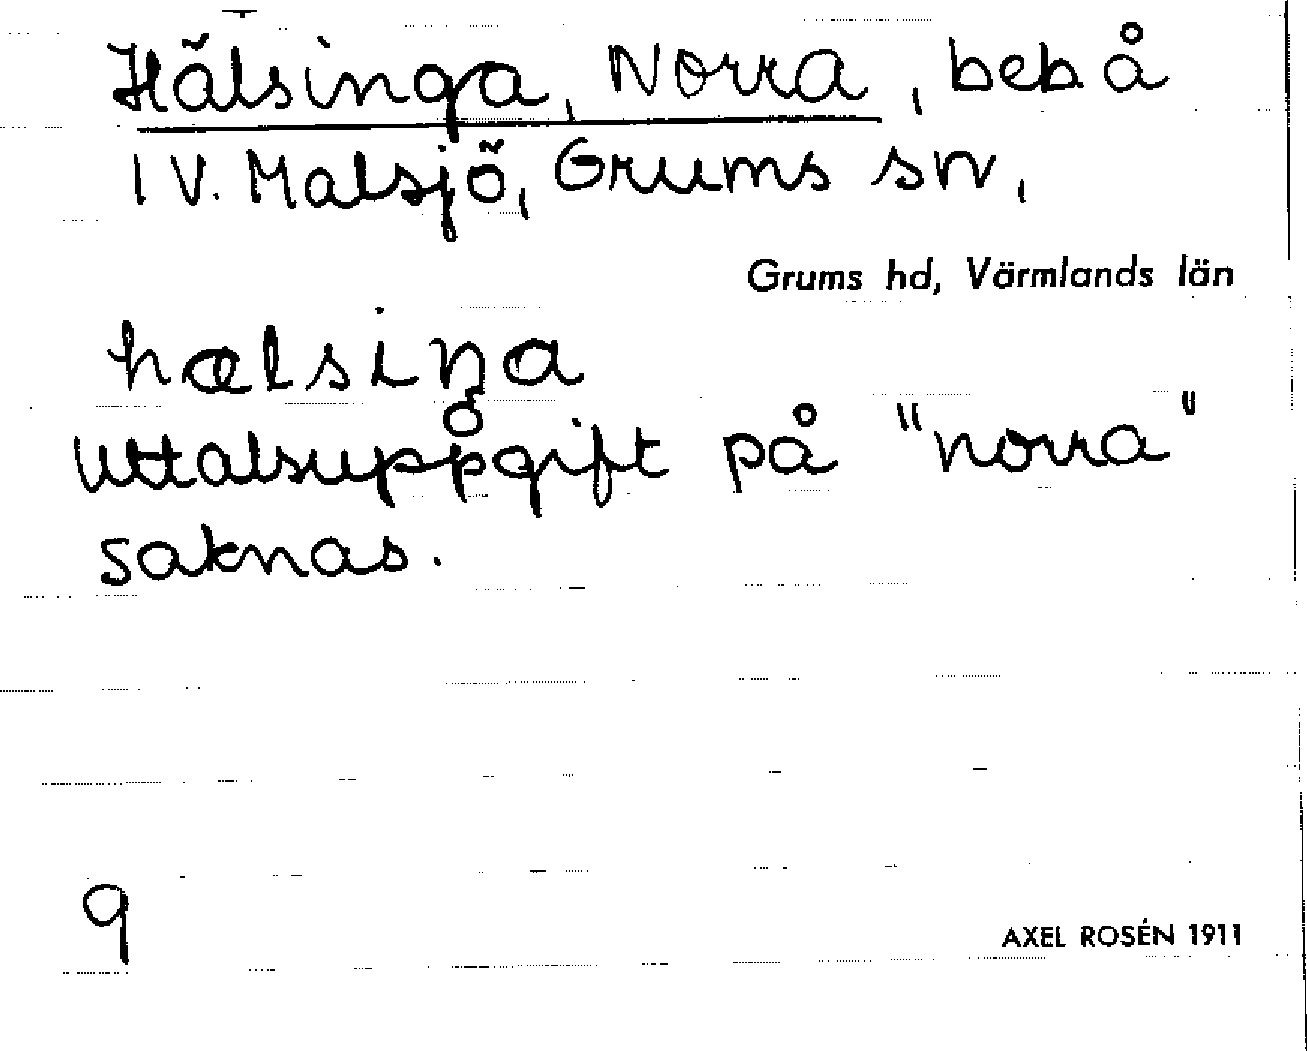 Hälsinga, Norra, beb. å
1 V. Malsjö, Grums sn,
Grums hd, Värmlands län
hælsiŋa
Uttalsuppgift på "norra"
saknas.
9
AXEL ROSÉN 1911